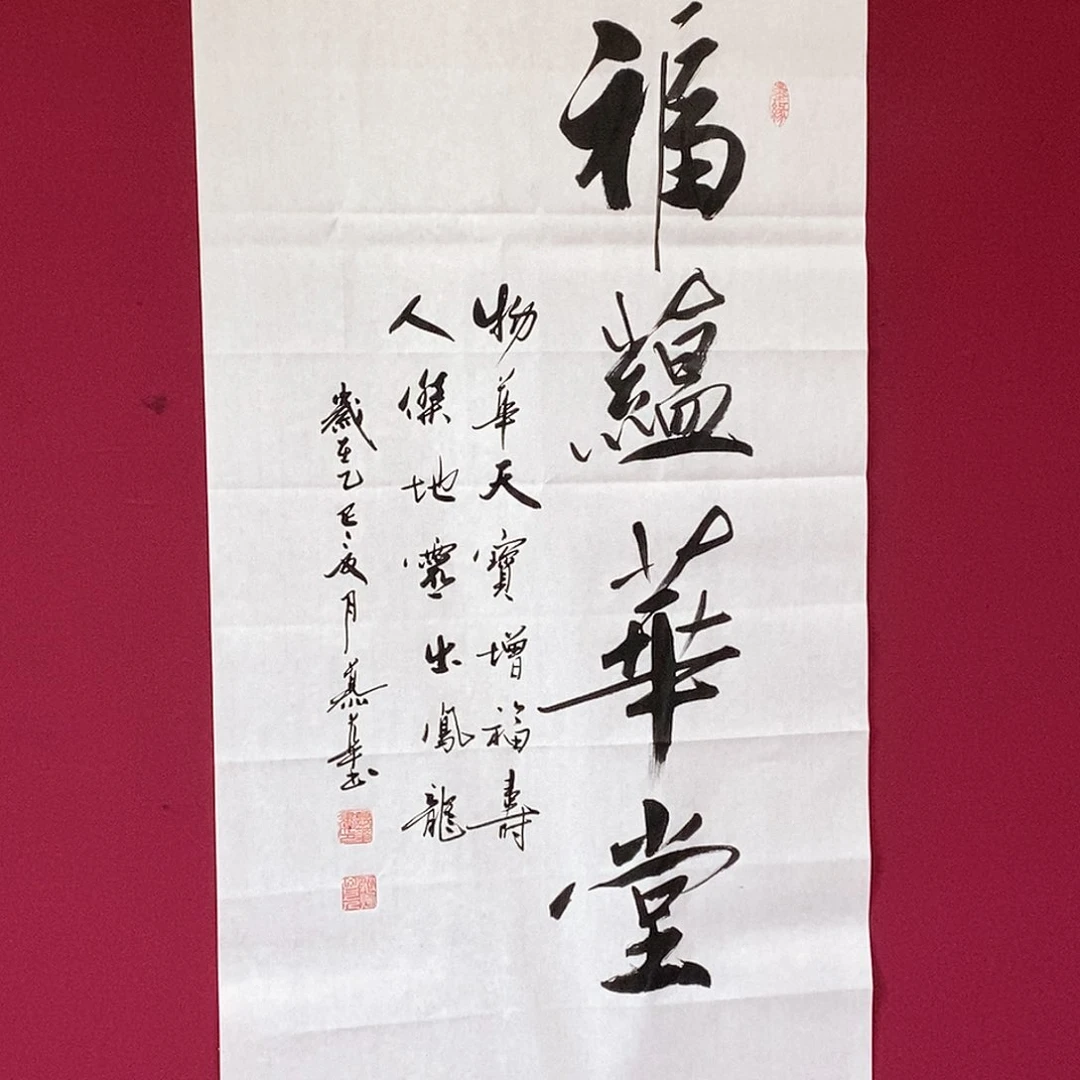 福蘊華堂
物華天寶增福壽
人傑地靈出鳳龍
歲至乙巳夏月慕華書